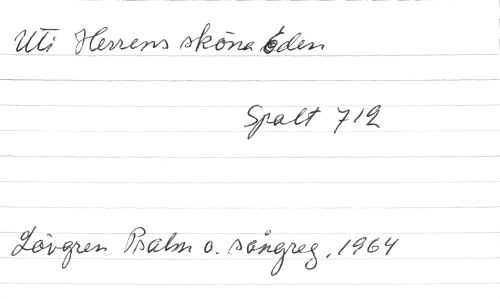 Uti Herrens sköna Eden
Spalt 712
Lövgren Psalm o. sångreg. 1964